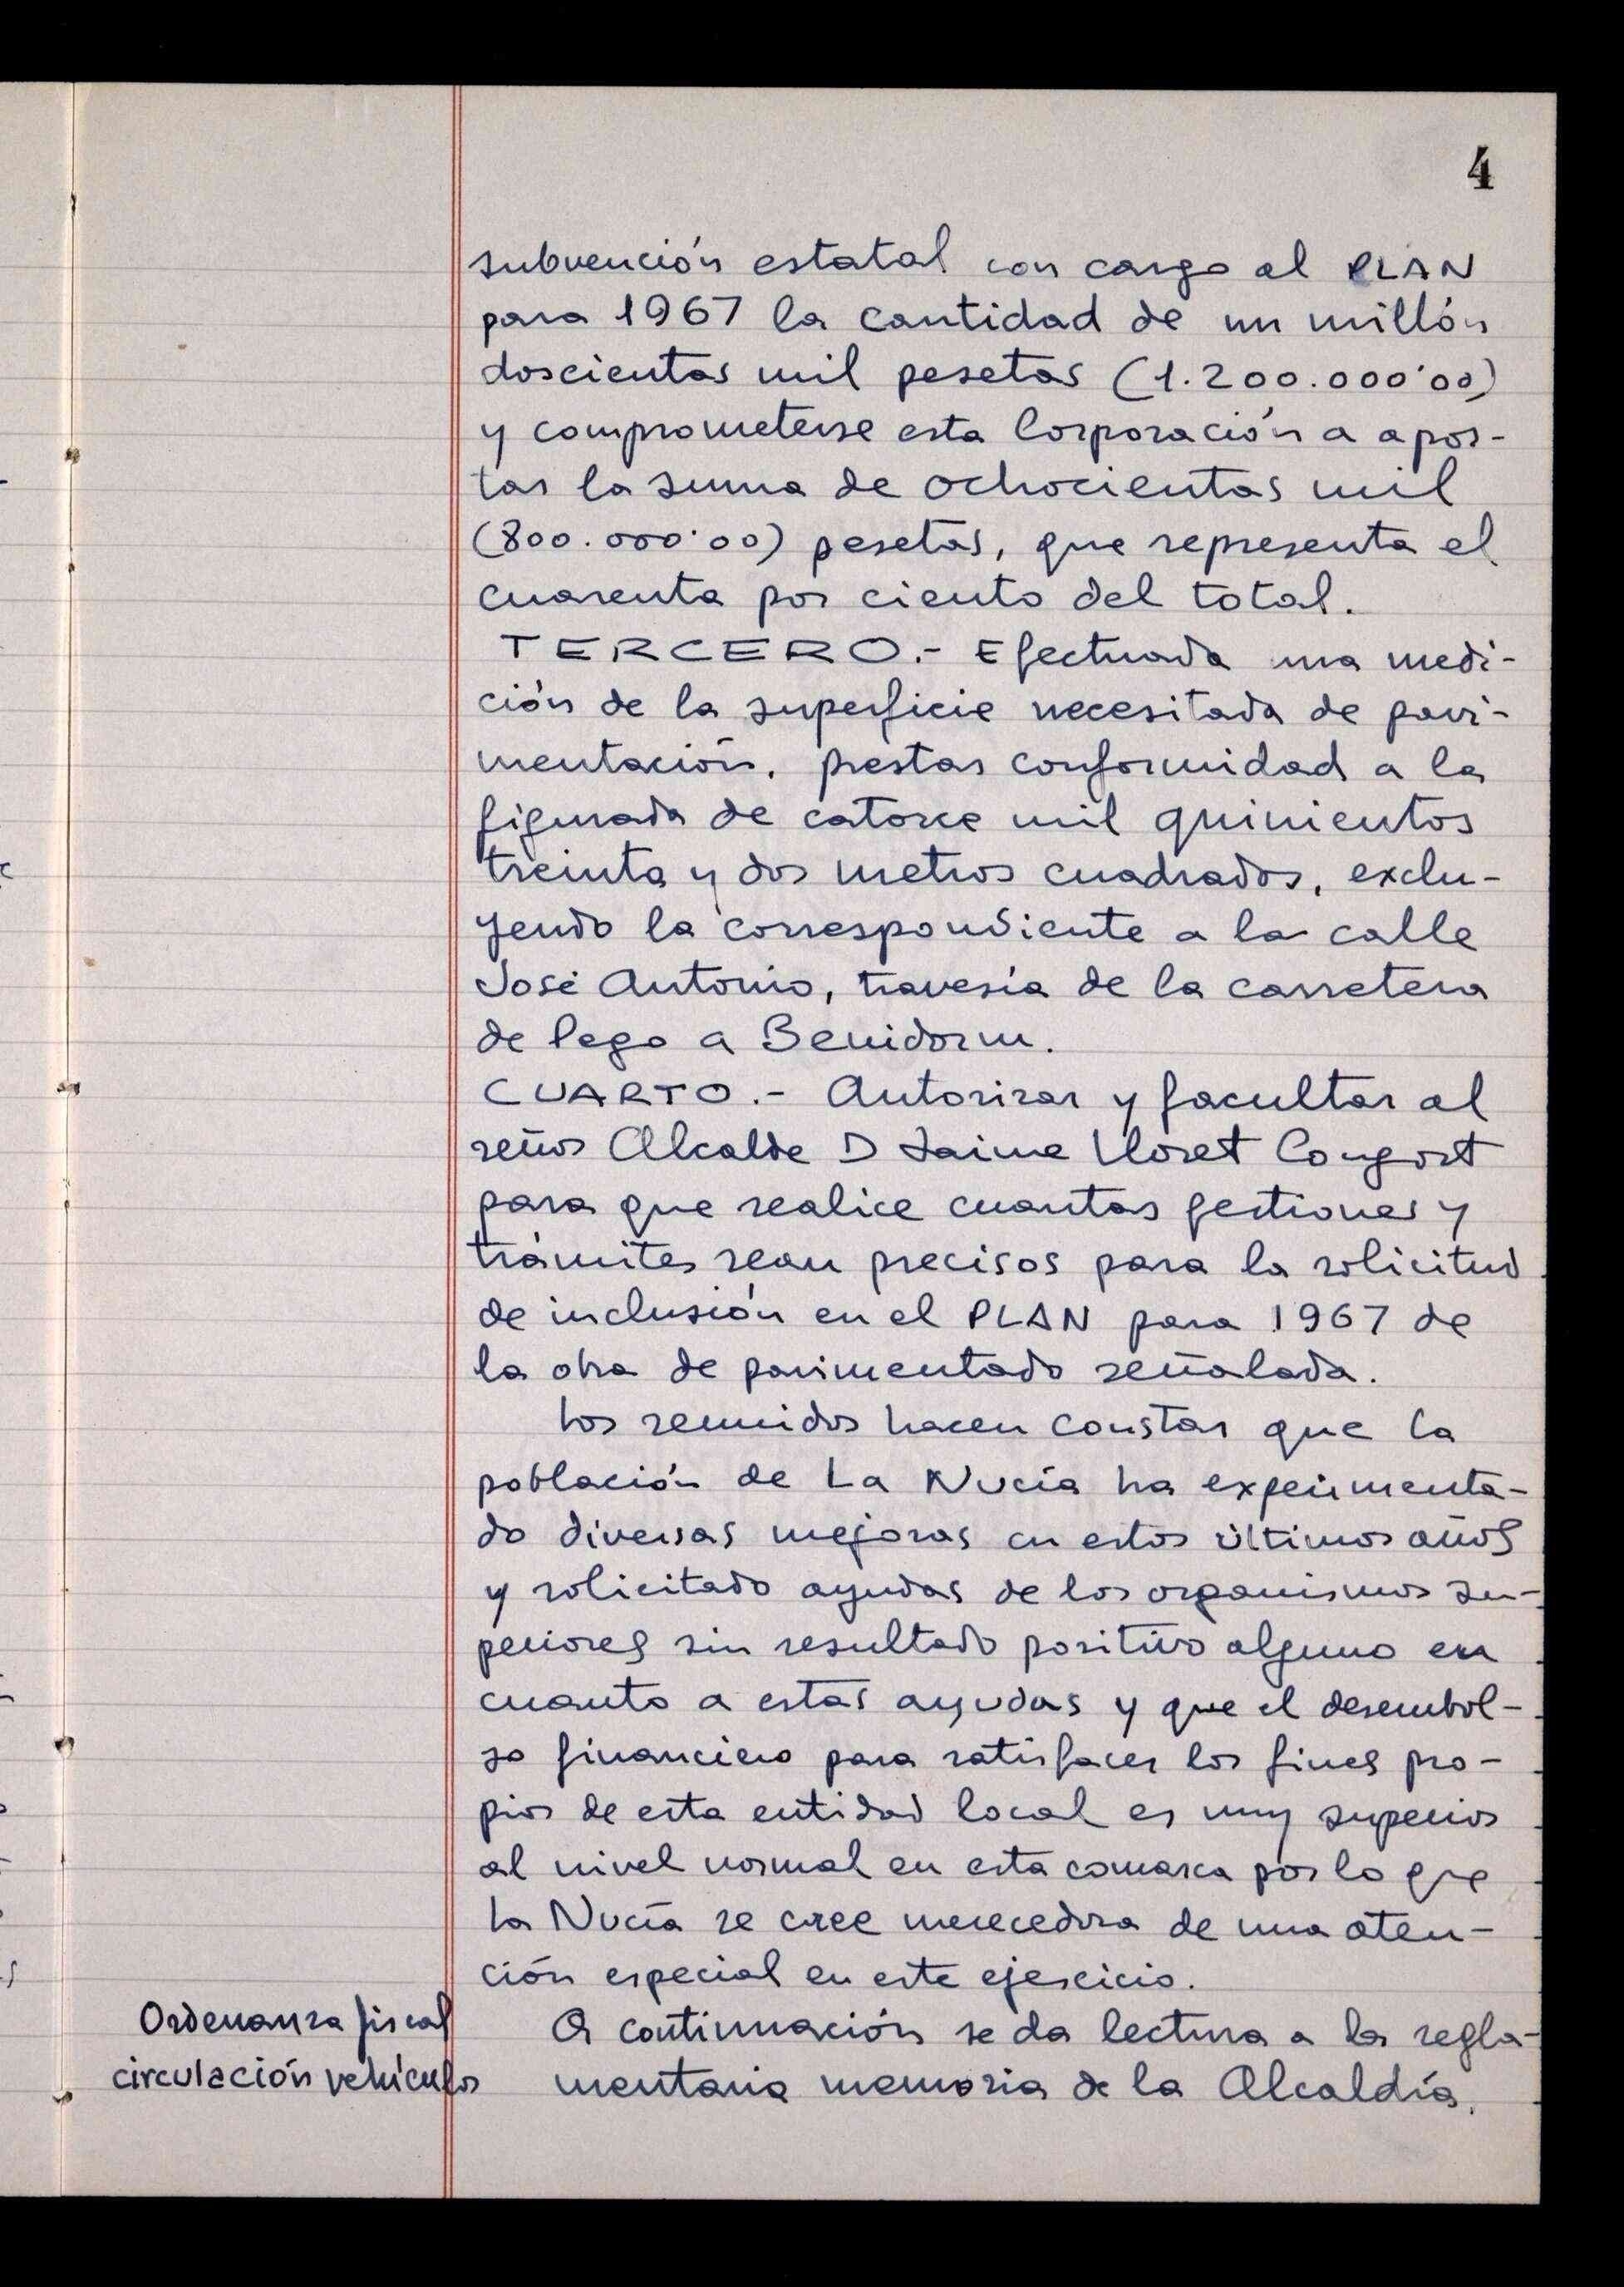 4
subvención estatal con cargo al PLAN
para 1967 la cantidad de un millón
doscientas mil pesetas (1.200.000'00)
y comprometerse esta Corporación a apor-
tar la suma de ochocientas mil
(800.000'00) pesetas, que representa el
cuarenta por ciento del total.
TERCERO.- Efectuada una medi-
ción de la superficie necesitada de pavi-
mentación, prestar conformidad a la
figurada de catorce mil quinientos
treinta y dos metros cuadrados, exclu-
yendo la correspondiente a la calle
José Antonio, travesía de la carretera
de Pego a Benidorm.
CUARTO.- Autorizar y facultar al
señor Alcalde D Jaime Lloret Congost
para que realice cuantas gestiones y
trámites sean precisos para la solicitud
de inclusión en el PLAN para 1967 de
la obra de pavimentado señalada.
Los reunidos hacen constar que la
población de La Nucía ha experimenta-
do diversas mejoras en estos últimos años
y solicitado ayudas de los organismos su-
periores sin resultado positivo alguno en
cuanto a estas ayudas y que el desembol-
so financiero para satisfacer los fines pro-
pios de esta entidad local es muy superior
al nivel normal en esta comarca por lo que
La Nucía se cree merecedora de una aten-
ción especial en este ejercicio.
Ordenanza fiscal
circulación vehículos
A continuación se da lectura a la regla-
mentaria memoria de la Alcaldía,